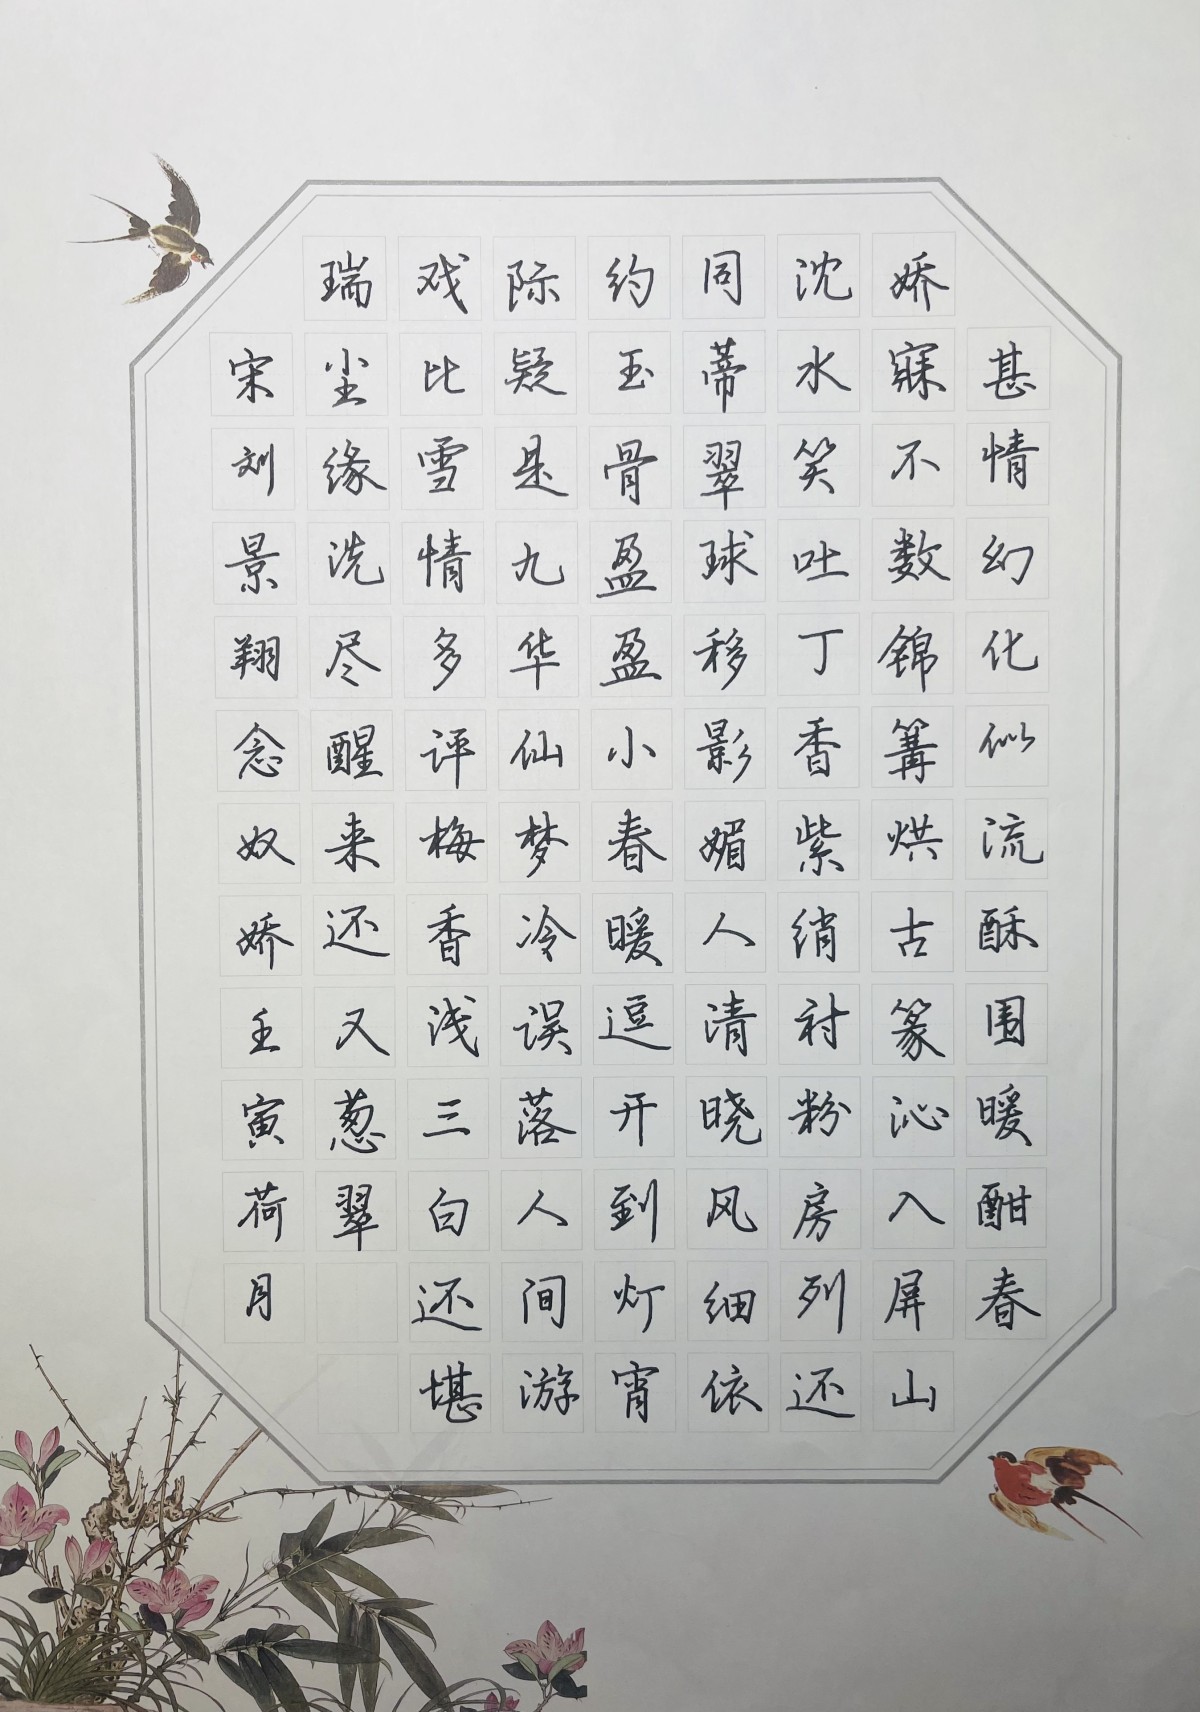 甚情幻化似流酥围暖酣春
娇寐不数锦篝烘古篆沁入屏山
沈水笑吐丁香紫绡衬粉房列还
同蒂翠球移影媚人清晓风细依
约玉骨盈盈小春暖逗开到灯宵
际疑是九华仙梦冷误落人间游
戏比雪情多评梅香浅三白还堪
瑞尘缘洗尽醒来还又葱翠
宋刘景翔念奴娇壬寅荷月